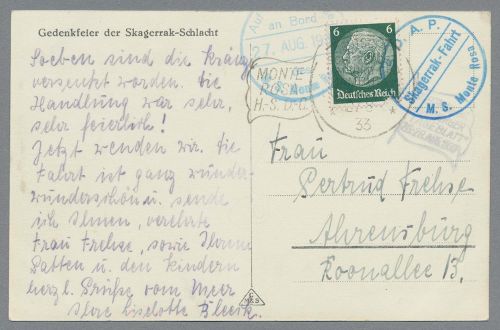 Gedenkfeier der Skagerrak-Schlacht
Soeben sind die Kränze
versenkt worden. die
Handlung war sehr,
sehr feierlich!
Jetzt wenden wir. die
Fahrt ist ganz wunder-
wunderschön u. sende
ich Ihnen, verehrte
Frau Frehse, sowie Ihrem
Gatten u. den Kindern
herzl. Grüße vom Meer
Ihre Liselotte
an Bord
27. AUG. 19
Monte
6 6
Deutsches Reich
MONTE
ROSA
H.-S.D.G.
33
D. A. P.
Skagerrak-Fahrt
M. S. Monte Rosa
Frau
Gertrud Frehse
Ahrensburg
Roonallee 13.